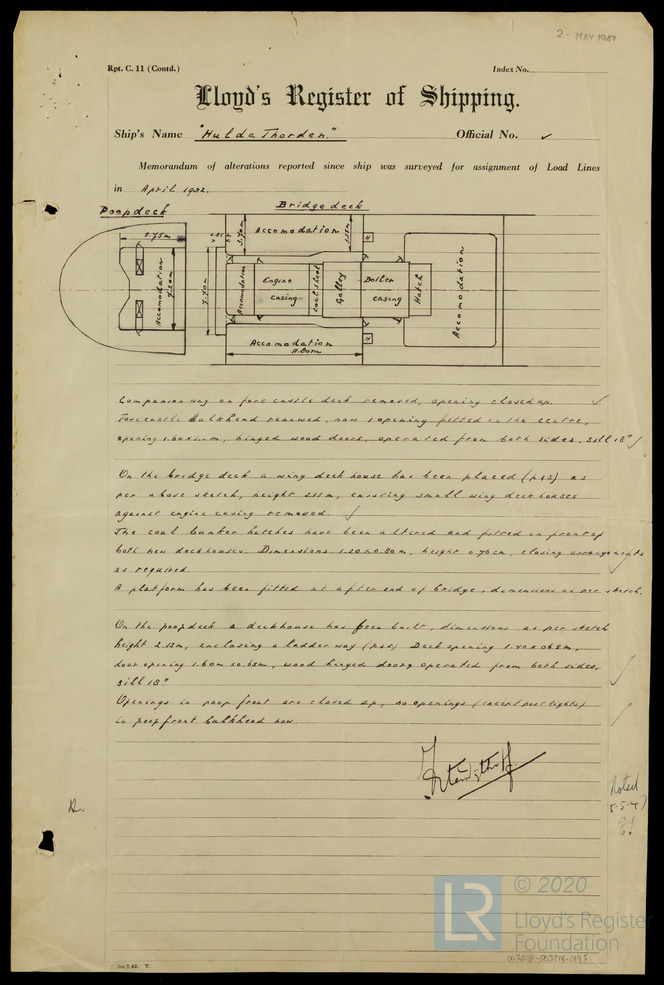 2 - MAY 1947
Rpt. C. 11 (Contd.)
Index No.
Lloyd's Register of Shipping.
Ship's Name "Hulda Thorden"
Official No.
Memorandum of alterations reported since ship was surveyed for assignment of Load Lines
in April 1932.
Poopdeck
Bridgedeck
3.75m
Accomodation
7.20m
7.70m
3.70m
Accomodation
3.15m
H
Accomodation
Engine casing
Coal shoot
Galley
Boiler casing
Hatch
Accomodation
Accomodation
11.80m
H
Companion way on forecastle deck removed, opening closed up.
Forecastle bulkhead renewed, now 1 opening fitted in the centre,
opening hinged wood doors, operated from both sides, sill 18"
On the bridge deck a wing deck house has been placed (p&s) as
per above sketch, height 2.13m, existing small wing deckhouses
against engine casing removed.
The coal bunker hatches have been altered and fitted in front of
both new deckhouses. Dimensions 1.20x0.80m, height 0.76cm, closing arrangements
as required.
A platform has been fitted at after end of bridge, dimensions as per sketch.
On the poopdeck a deckhouse has been built, dimensions as per sketch
height 2.13m, enclosing a ladder way (p&s) Deck opening
door opening 1.60m x0.65m, wood hinged doors operated from both sides,
sill 18"
Openings in poop front are closed up, no openings (except portlights)
in poop front bulkhead now.
Noted
5-5-47
© 2020
LR
Lloyd's Register
Foundation
003208-003216-0195